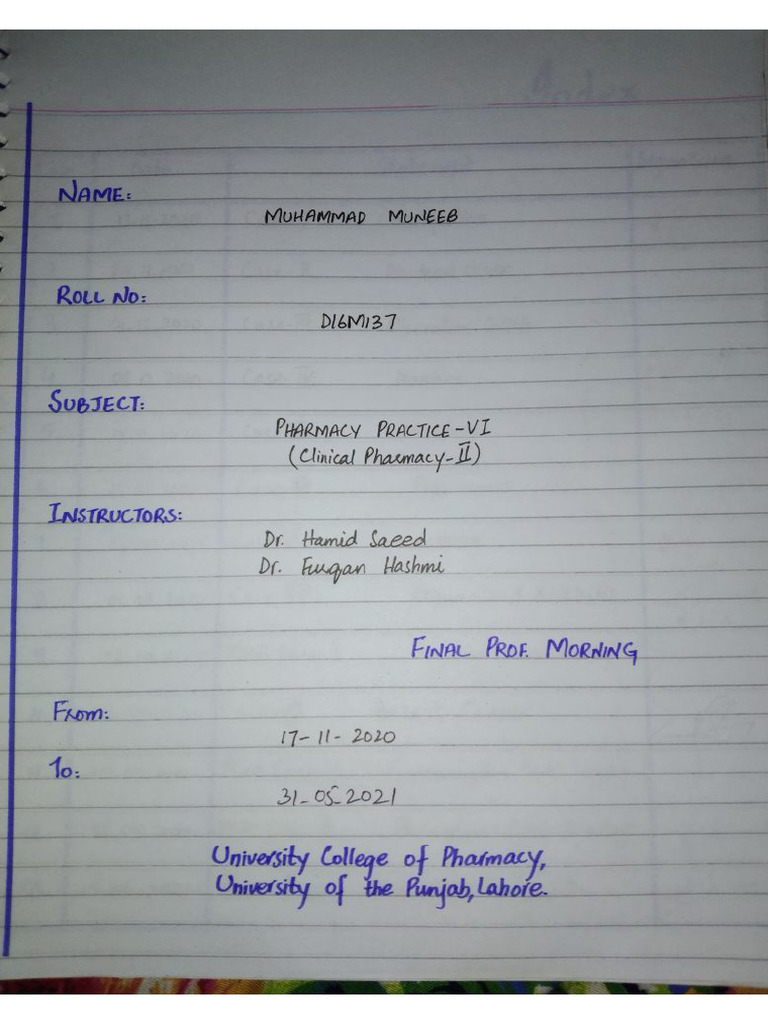 NAME:
MUHAMMAD MUNEEB
ROLL NO:
D16M137
SUBJECT:
PHARMACY PRACTICE-VI
(Clinical Pharmacy-II)
INSTRUCTORS:
Dr. Hamid Saeed
Dr. Furqan Hashmi
FINAL PROF. MORNING
From:
17-11-2020
To:
31-05-2021
University College of Pharmacy,
University of the Punjab, Lahore.